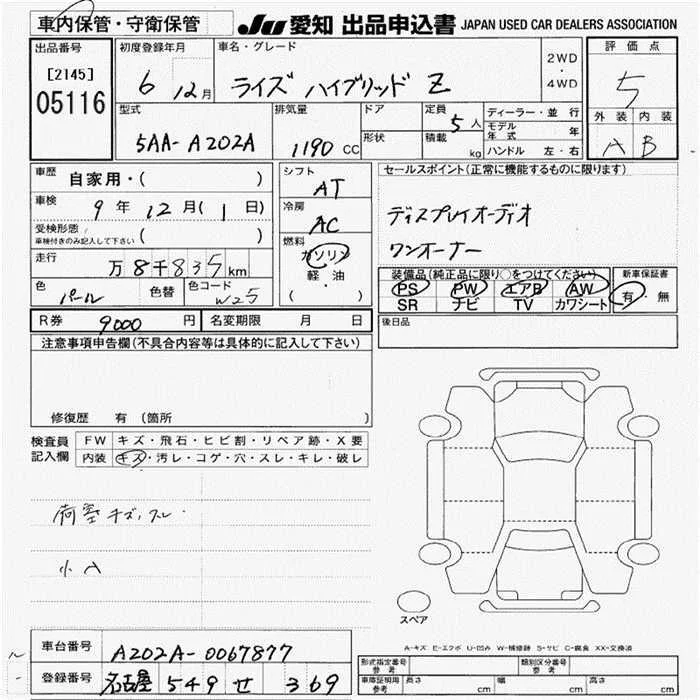 車内保管・守衛保管 JU 愛知 出品申込書 JAPAN USED CAR DEALERS ASSOCIATION
出品番号 初度登録年月 車名・グレード 評価点
[2145] 6 12月 ライズ ハイブリッド Z 2WD・4WD 5
05116
型式 排気量 ドア 定員 5人 ディーラー・並行 外装 内装
5AA-A202A 1190 CC 形状 積載 kg モデル年式 年 A B
ハンドル 左・右
車歴 自家用・( ) シフト AT セールスポイント(正常に機能するものに限ります)
車検 9年12月(1日) 冷房 AC ディスプレイオーディオ
受検形態 ( ) 燃料 ワンオーナー
車検付きのみ記入して下さい ガソリン
走行 万8千835km 軽・油 装備品(純正品に限り○をつけてください) 新車保証書
色 パール 色替 色コード W25 ( ・ ) PS PW エアB AW 有・無
SR ナビ TV カワシート
R券 9000円 名変期限 月 日 後日品
注意事項申告欄(不具合内容等は具体的に記入して下さい)
修復歴 有(箇所
検査員 FW キズ・飛石・ヒビ割・リペア跡・X要
記入欄 内装 キズ・汚レ・コゲ・穴・スレ・キレ・破レ
荷室キズ、スレ・
小A
スペア
A-キズ E-エクボ U-凹み W-補修跡 S-サビ C-腐食 XX-交換済
車台番号 A202A-0067877 形式指定番号 参考 類別区分番号 参考
登録番号 名古屋 549 せ 369 車庫証明用 参考 長さ cm 幅 cm 高さ cm